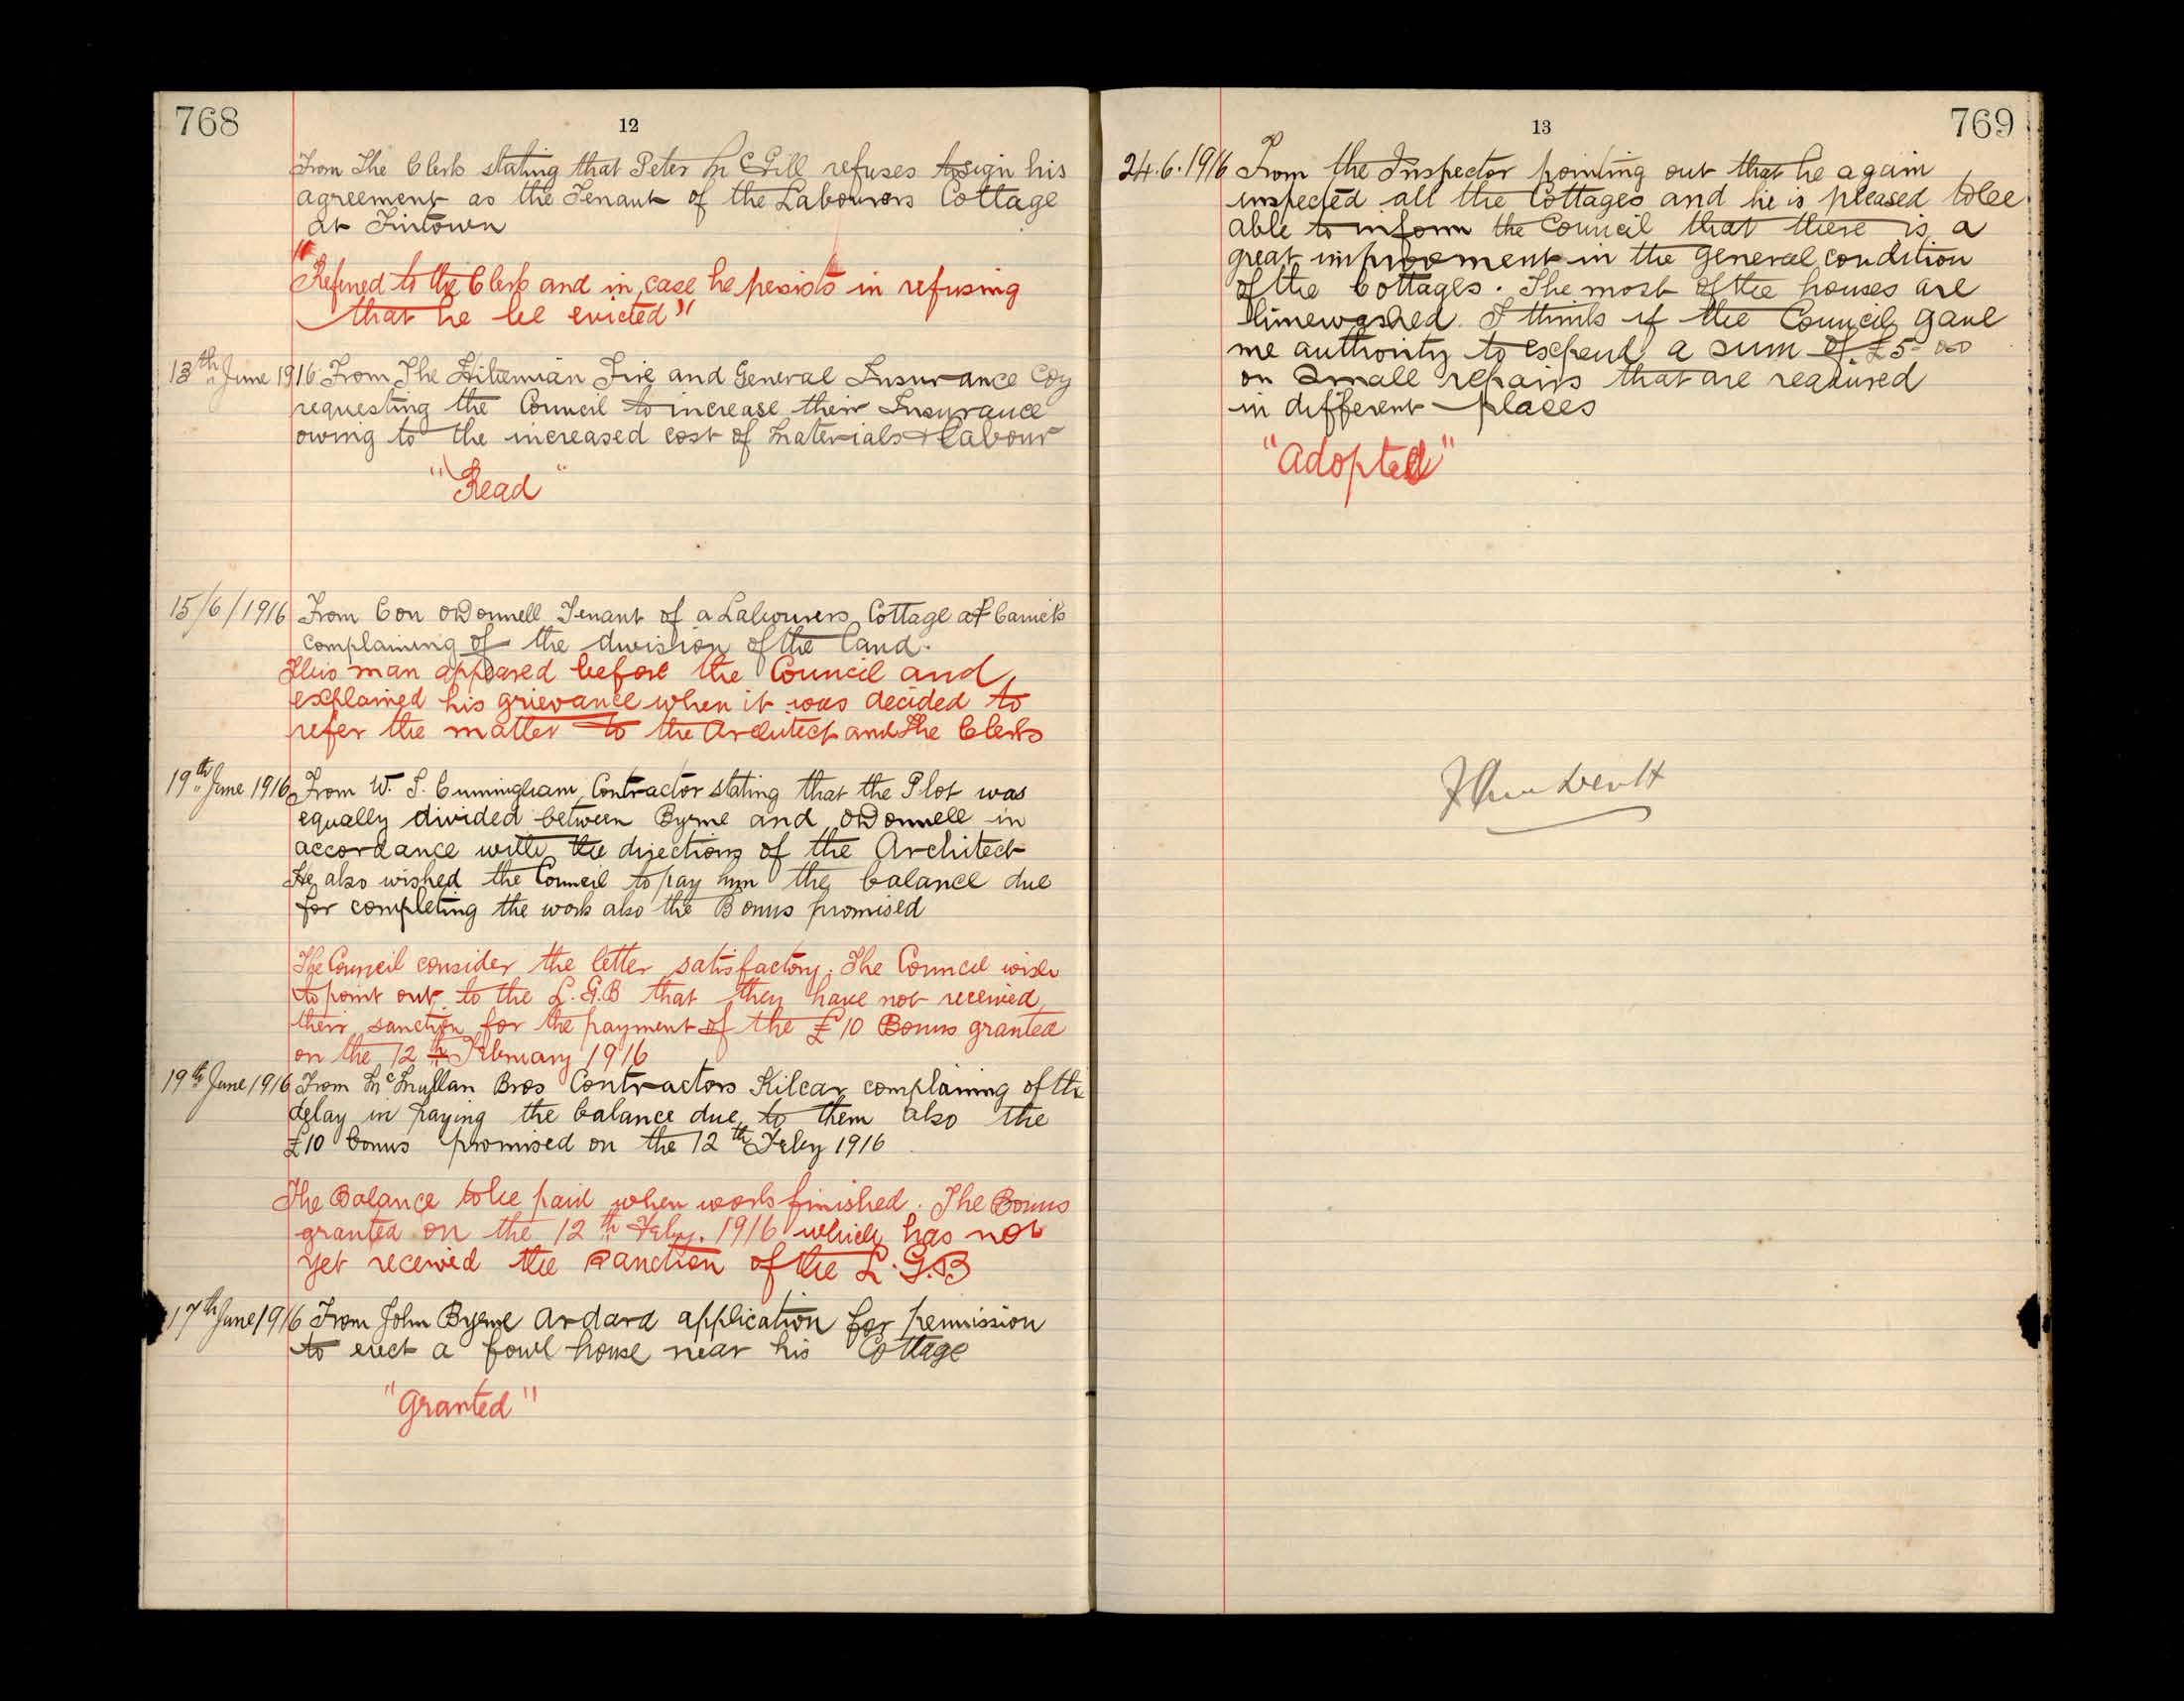 768
12
From The Clerk stating that Peter McGill refuses to sign his
agreement as the Tenant of the Labourers Cottage
at Fintown
"Referred to the Clerk and in case he persists in refusing
that he be evicted"
13th June 1916 From The Hibernian Fire and General Insurance Coy
requesting the Council to increase their Insurance
owing to the increased cost of materials & Labour
"Read"
15/6/1916 From Con O'Donnell Tenant of a Labourers Cottage at Carrick
complaining of the division of the land.
This man appeared before the Council and
explained his grievance when it was decided to
refer the matter to the Architect and the Clerk
19th June 1916 From W. J. Cunningham Contractor stating that the Plot was
equally divided between Byrne and O'Donnell in
accordance with the directions of the Architect
He also wished the Council to pay him the balance due
for completing the work also the Bonus promised
The Council consider the letter satisfactory. The Council wish
to point out to the L.G.B that they have not received
their sanction for the payment of the £10 Bonus granted
on the 12th February 1916
19th June 1916 From McMullan Bros Contractors Kilcar complaining of the
delay in paying the balance due to them also the
£10 bonus promised on the 12th Feby 1916
The Balance to be paid when work finished. The Bonus
granted on the 12th Feby. 1916 which has not
yet received the sanction of the L.G.B
17th June 1916 From John Byrne Ardara application for permission
to erect a fowl house near his Cottage
"Granted"
769
13
24.6.1916 From the Inspector pointing out that he again
inspected all the Cottages and he is pleased to be
able to inform the Council that there is a
great improvement in the general condition
of the Cottages. The most of the houses are
limewashed. I think if the Council gave
me authority to expend a sum of £5-
on small repairs that are required
in different places
"Adopted"